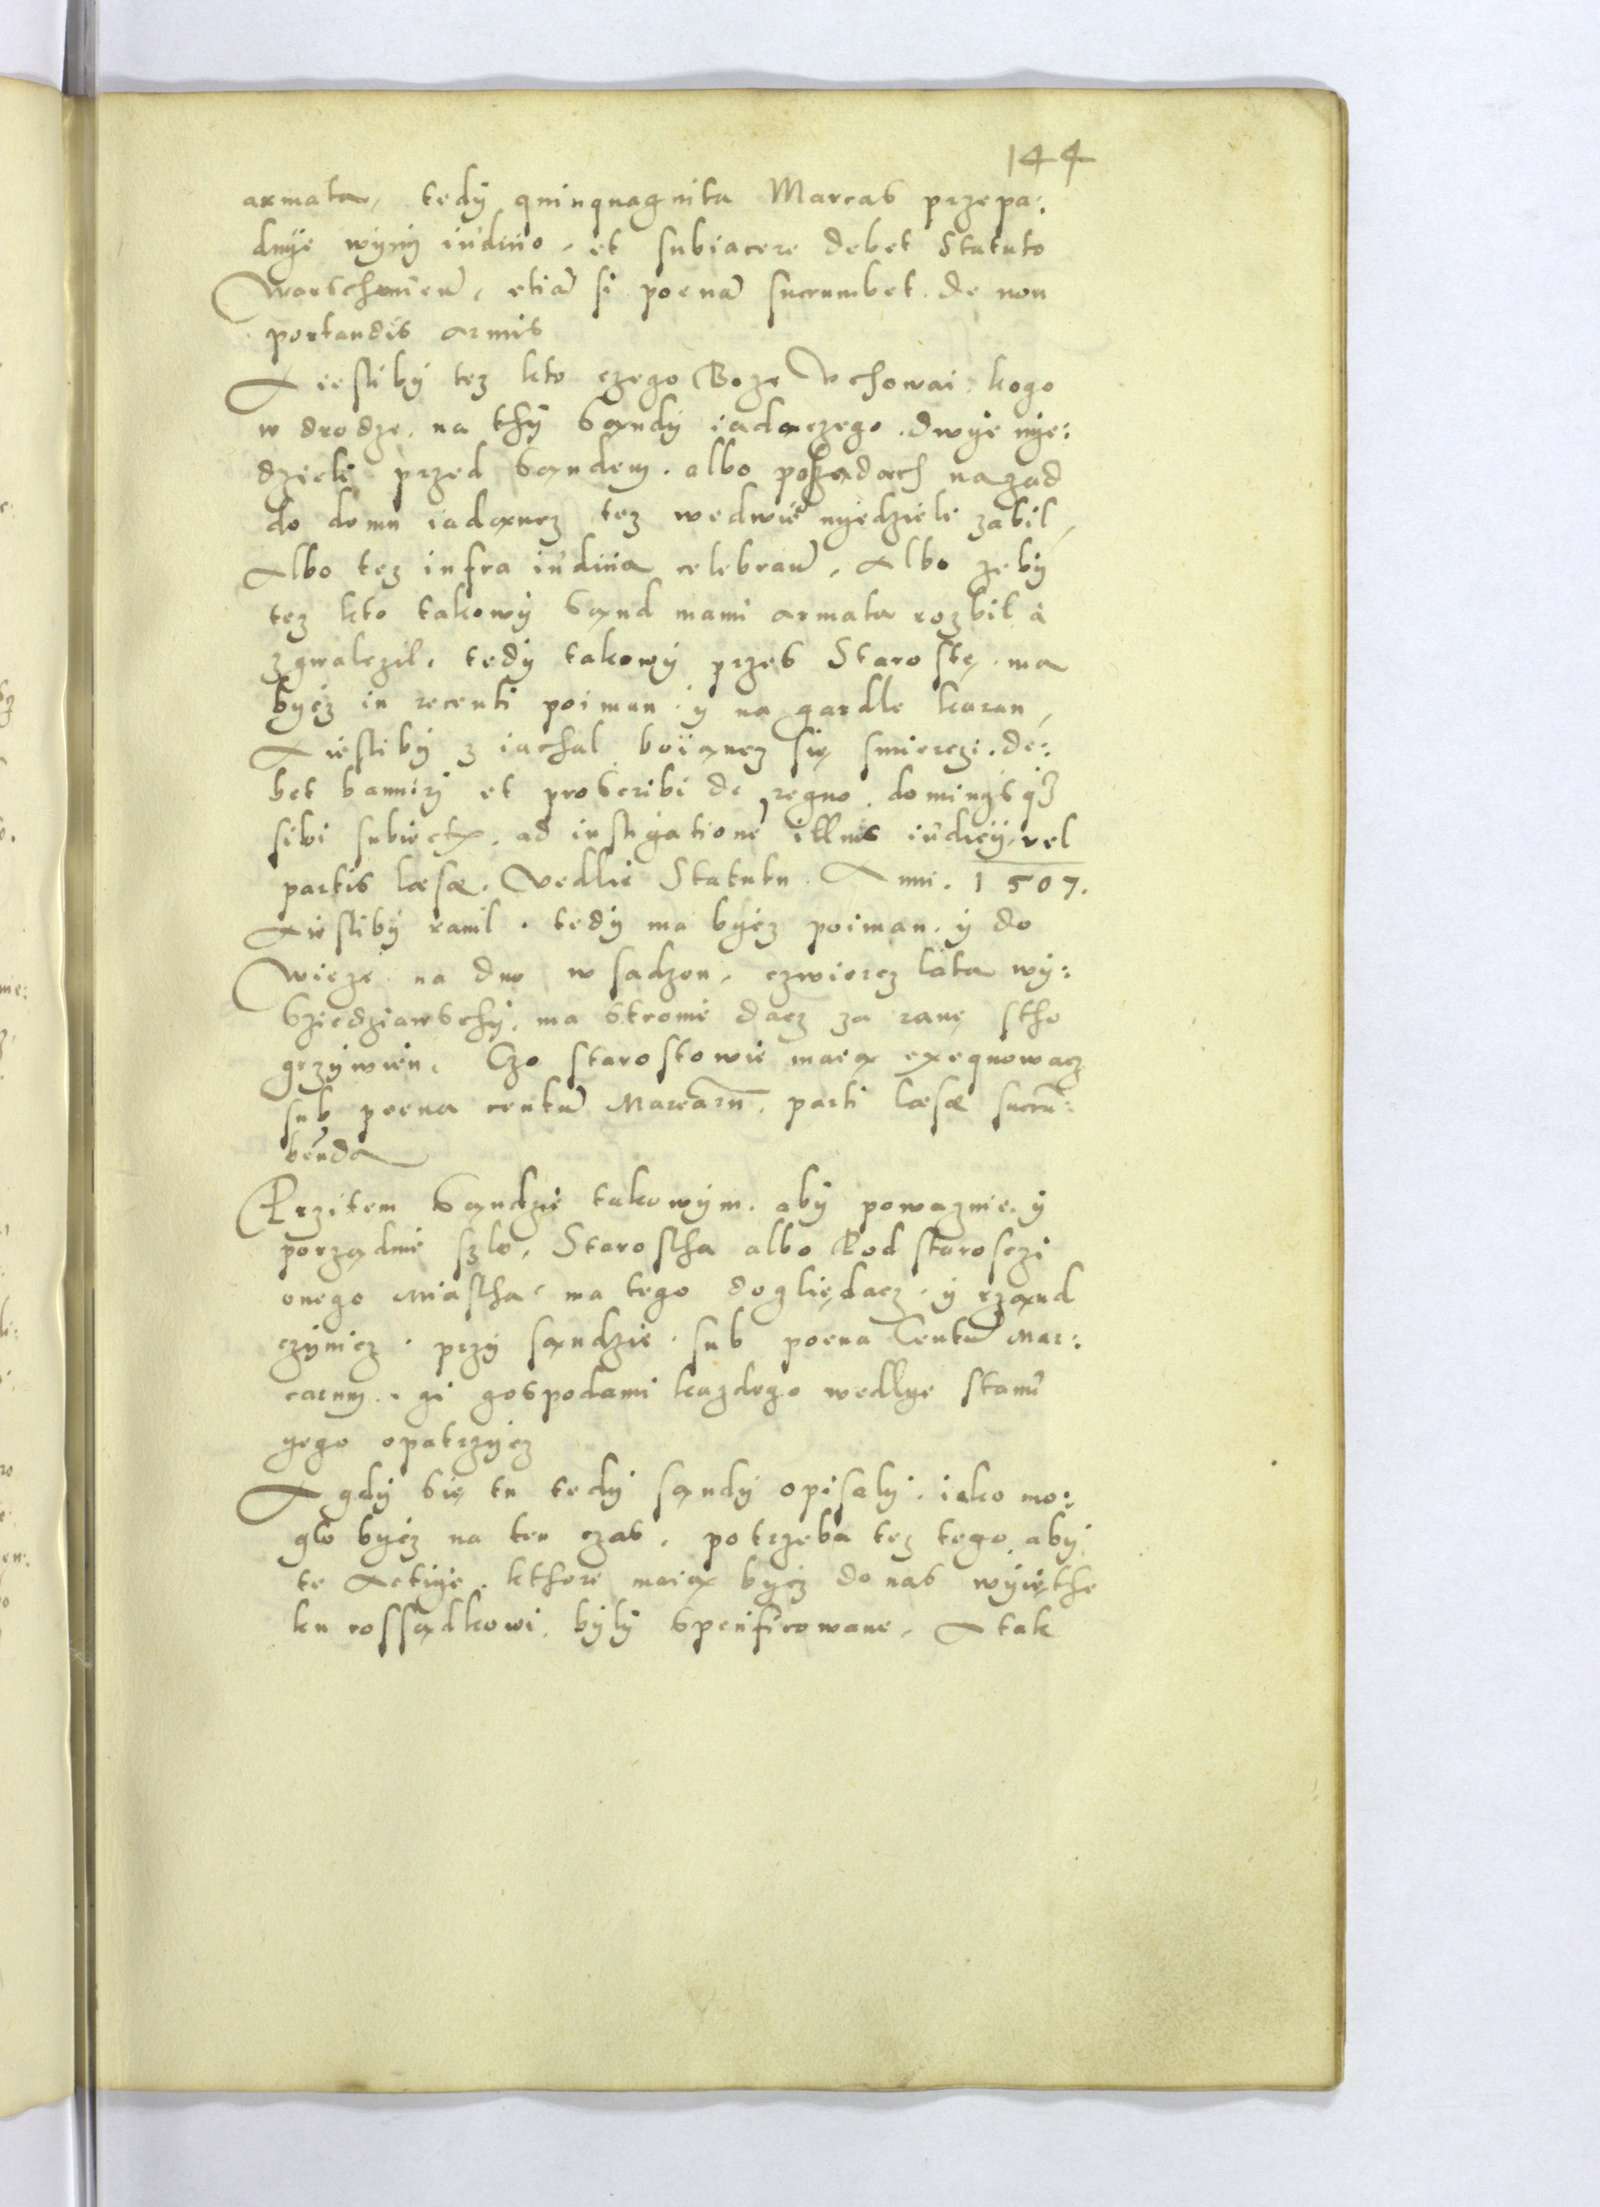 144
armata, tedÿ quinquaginta Marcas przepa:
dnÿe wÿnÿ iuditio, et subiacere debet Statuto
Wartheñieñ, etiã si poenã succumbet de non
portandis armis
A iesliby tez kto czego Boze Uchowai, kogo
w drodze, na thÿ Sandÿ iadaczego, dwÿe nÿe:
dzieli przed Sandem, albo po Sądach nazad
do domu iadancz tez wedwie nÿedzieli zabil,
Albo tez infra iudicia celebrañ, Albo zebÿ
tez kto takowÿ Sąnd manu armata rozbil a
zgwalczil, tedÿ takowÿ przes Starostę ma
bÿcz in recenti poiman ÿ na gardle karan,
A iesliby z iachal boiancz się smierczi, de:
bet banniri et proscribi de regno, dominÿsq3
sibi subiectis, ad instigationẽ illius iudicÿ, vel
partis læsæ, Vedlie Statutu Anni 1507.
A iesliby ranil, tedÿ ma bÿcz poiman ÿ do
Wieze na dno w sadzon, czwiercz lata wÿ:
Sziedziawschÿ, ma stronie dacz za ranę stho
grzÿwien, Czo starostowie maią exequowacz
sub poena centũ Marcarũ, parti læsæ succũ:
benda
Przitem Sandzie takowÿm, abÿ powaznie, ÿ
porządnie szlo, Staroscha albo Pod starosczi
onego Miascha ma tego dogliędacz, ÿ rząnd
czÿnicz, przÿ sąndzie, sub poena Centũ Mar:
carum, gi gospodami kazdego wedlÿe stanu
ÿego opatrzÿcz
A gdÿ się tu tedÿ sąndÿ opisalÿ, iako mo:
glo bÿcz na ten czas, potrzeba tez tego, abÿ
te Actiÿe, kthore maią bÿcz do nas wÿięthe
ku rossądkowi, bÿlÿ Specificowane, A tak